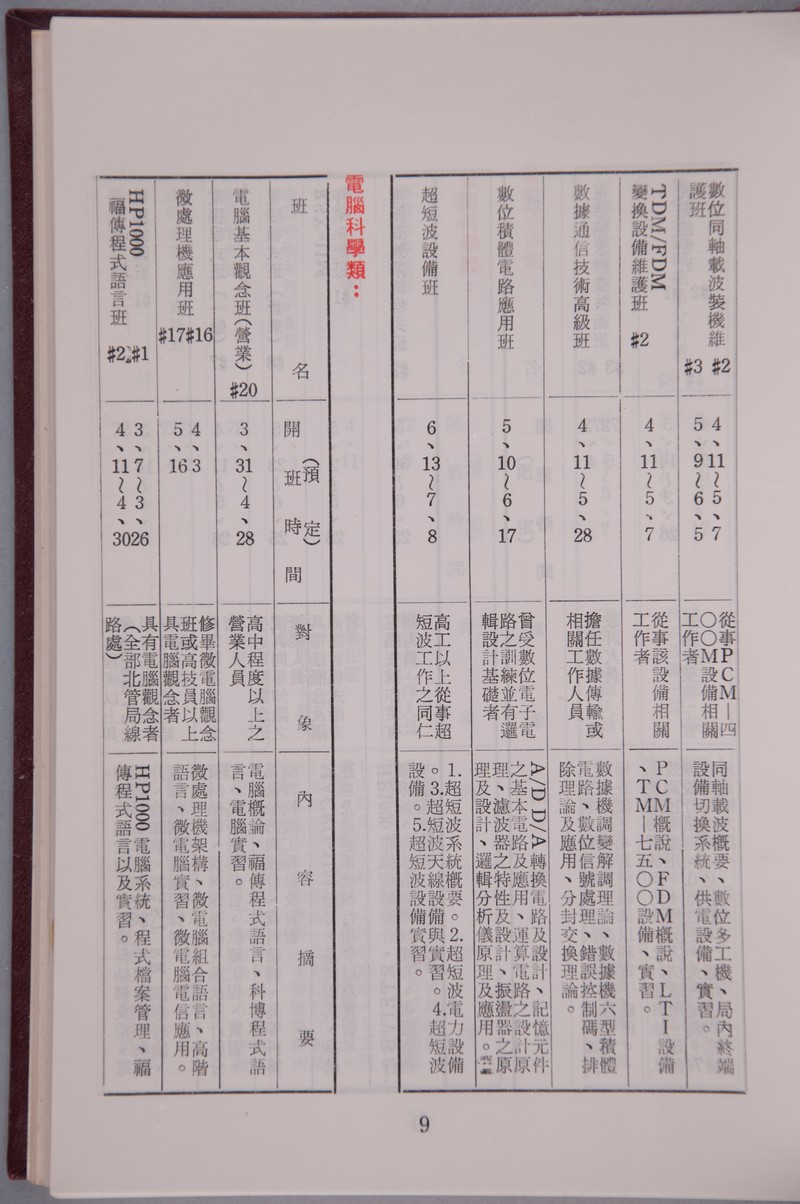 數位同軸載波裝機維
護班
#2
#3
4、11～5、7
5、9～6、5
從事PCM｜四
○○M設備相關
工作者
同軸載波概要、數位多工機、局內終端
設備切換系統、供電設備、實習。
TDM/FDM
變換設備維護班
#2
4、11～5、7
從事該設備相關
工作者
PCM概說、FDM概說、LTI設備
、TM｜七五○○設備、實習。
數據通信技術高級班
4、11～5、28
擔任數據傳輸或
相關工作人員
數據機調變解調理論、數據機六型積體
電路、數位信號處理、錯誤控制碼、排
除理論及應用、分封交換理論。
數位積體電路應用班
5、10～6、17
曾受數位電子電
路之訓練並有邏
輯設計基礎者
A/D D/A轉換電路及設計、記憶元件
之基本電路及應用、運算電路之設計原
理、濾波器之特性及設計、振盪器之原
理及設計、邏輯分析儀原理及應用。
超短波設備班
6、13～7、8
高工以上從事超
短波工作之同仁
1.超短波系統概要。2.超短波電力設備
。3.超短波天線設備與實習。4.超短波
設備。5.超短波設備實習。
電腦科學類：
班名
開班時間
（預定）
對象
內容摘要
電腦基本觀念班（營業）
#20
3、31～4、28
高中程度以上之
營業人員
電腦概論、福傳程式語言、科博程式語
言、電腦實習。
微處理機應用班
#16
#17
4、3
5、16
修畢微電腦觀念
班或高技員以上
具電腦觀念者
微處理機架構、微電腦組合語言、高階
語言、微電腦實習、微電腦電信應用。
HP1000
福傳程式語言班
#1
#2
3、7～3、26
4、11～4、30
具有電腦觀念者
（全部北管局線
路處）
HP1000電腦系統、程式檔案管理、福
傳程式語言以及實習。
9